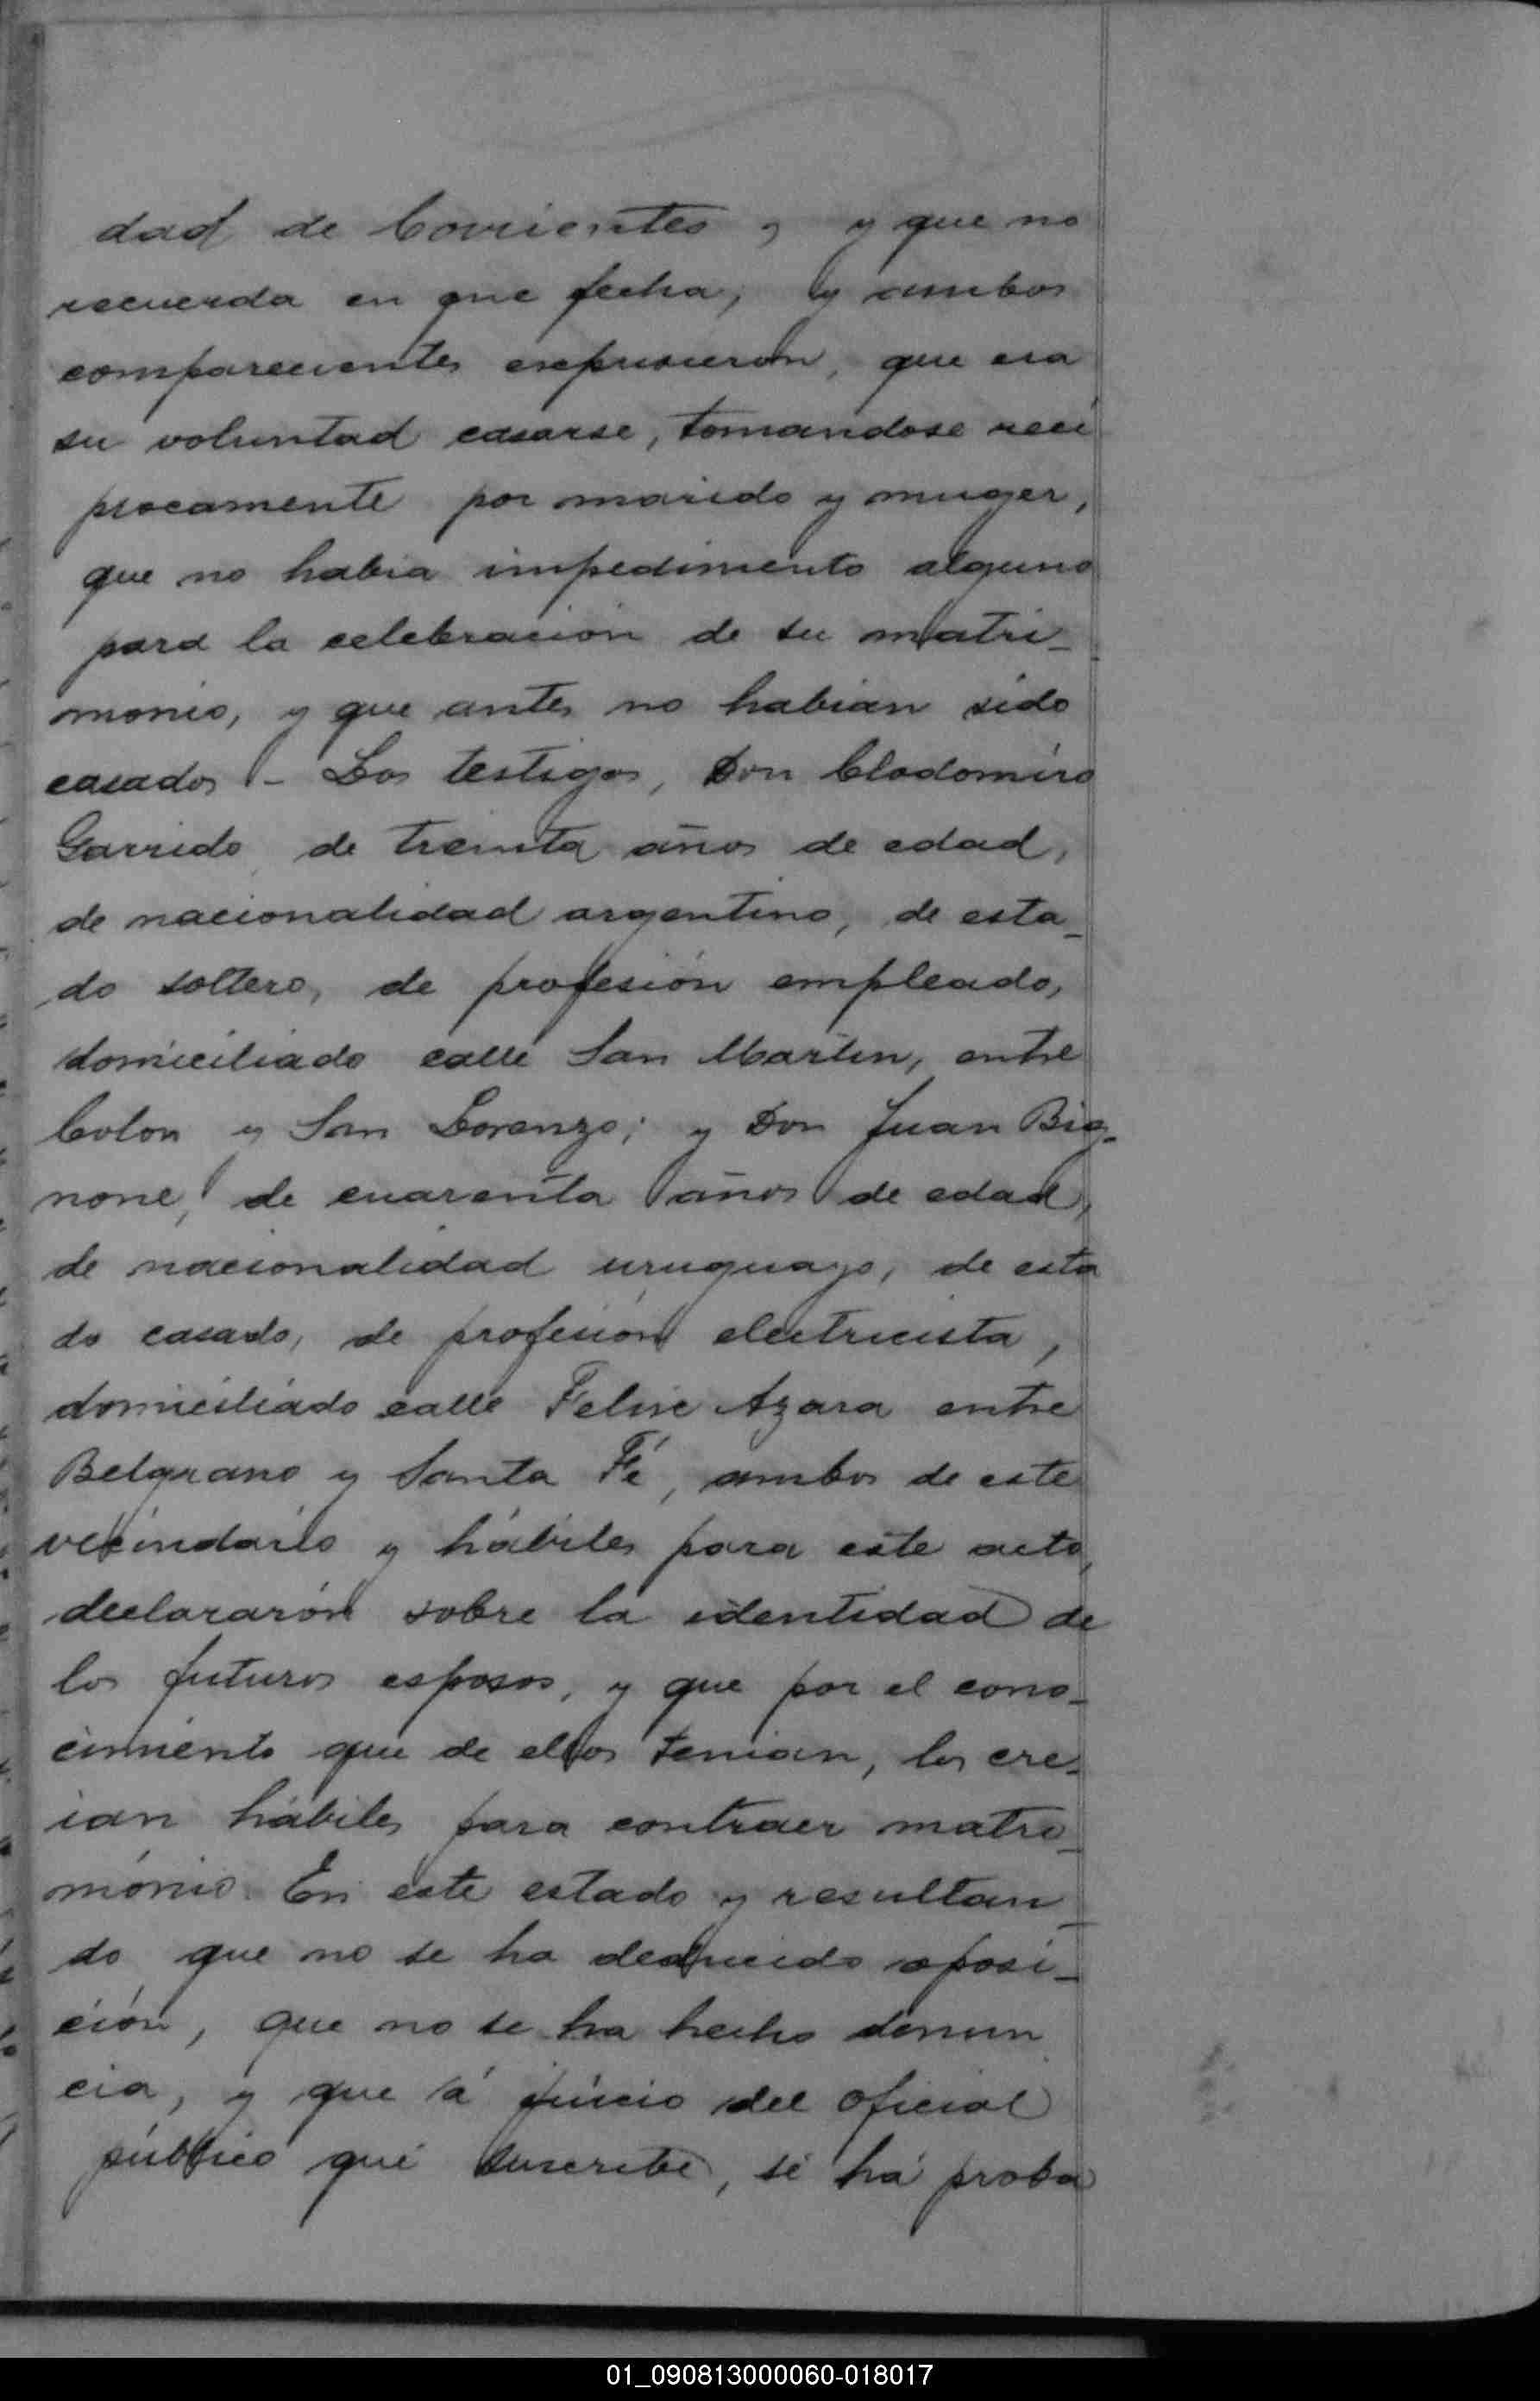 dad de Corrientes, y que no
recuerda en que fecha; y ambos
comparecientes expusieron, que era
su voluntad casarse, tomandose reci
procamente por marido y muger,
que no habia impedimento alguno
para la celebración de su matri-
monio, y que antes no habian sido
casados - Los testigos, Don Clodomiro
Garrido, de treinta años de edad,
de nacionalidad argentino, de esta-
do soltero, de profesión empleado,
domiciliado calle San Martin, entre
Colon y San Lorenzo; y Don Juan Big-
none, de cuarenta años de edad,
de nacionalidad uruguayo, de esta
do casado, de profesión electricista,
domiciliado calle Felix Azara entre
Belgrano y Santa Fé, ambos de este
vecindario y hábiles para este acto,
declararón sobre la identidad de
los futuros esposos, y que por el cono-
cimiento que de ellos tenian, los cre-
ian hábiles para contraer matri-
mónio. En este estado y resultan-
do que no se ha deducido oposi-
ción, que no se ha hecho denun
cia, y que á juicio del oficial
público que suscribe, se ha proba
01_090813000060-018017